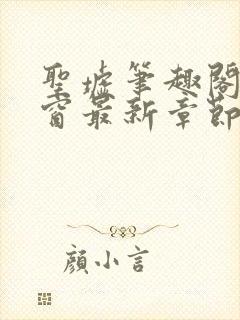 聖墟筆趣閣
窗最新章節
顏小言